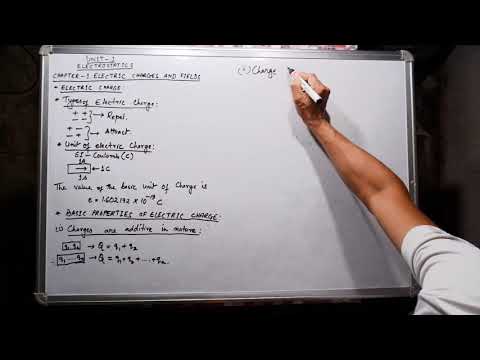 UNIT-1
ELECTROSTATICS
CHAPTER-1 ELECTRIC CHARGES AND FIELDS
• ELECTRIC CHARGE:
• Types of Electric Charge:
+ +
− −
→ Repel.
+ −
+ −
→ Attract.
• Unit of electric Charge:
SI - Coulomb (C)
1A
→ ← 1C
1s
The value of the basic unit of Charge is
e = 1.602192 × 10⁻¹⁹ C
• BASIC PROPERTIES OF ELECTRIC CHARGE:
(i) Charges are additive in nature:
q₁, q₂ → Q = q₁ + q₂
q₁ .... qₙ → Q = q₁ + q₂ + .... + qₙ.
(ii) Charge